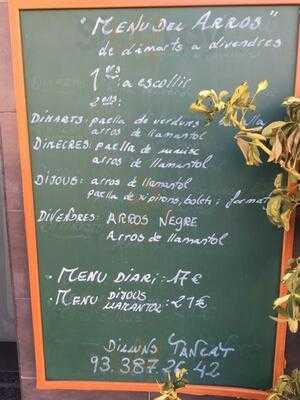 "MENU DEL ARROS"
de dimarts a divendres
1ers a escollir
2ons:
DIMARTS: paella de verdures
arros de llamantol
DIMECRES: paella de marisc
arros de llamantol
DIJOUS: arros de llamantol
paella de xipirons, bolets i
DIVENDRES: ARROS NEGRE
Arros de llamantol
• MENU DIARI: 17€
• MENU DIJOUS LLAMANTOL: 21€
DILLUNS TANCAT
93.387.26 42